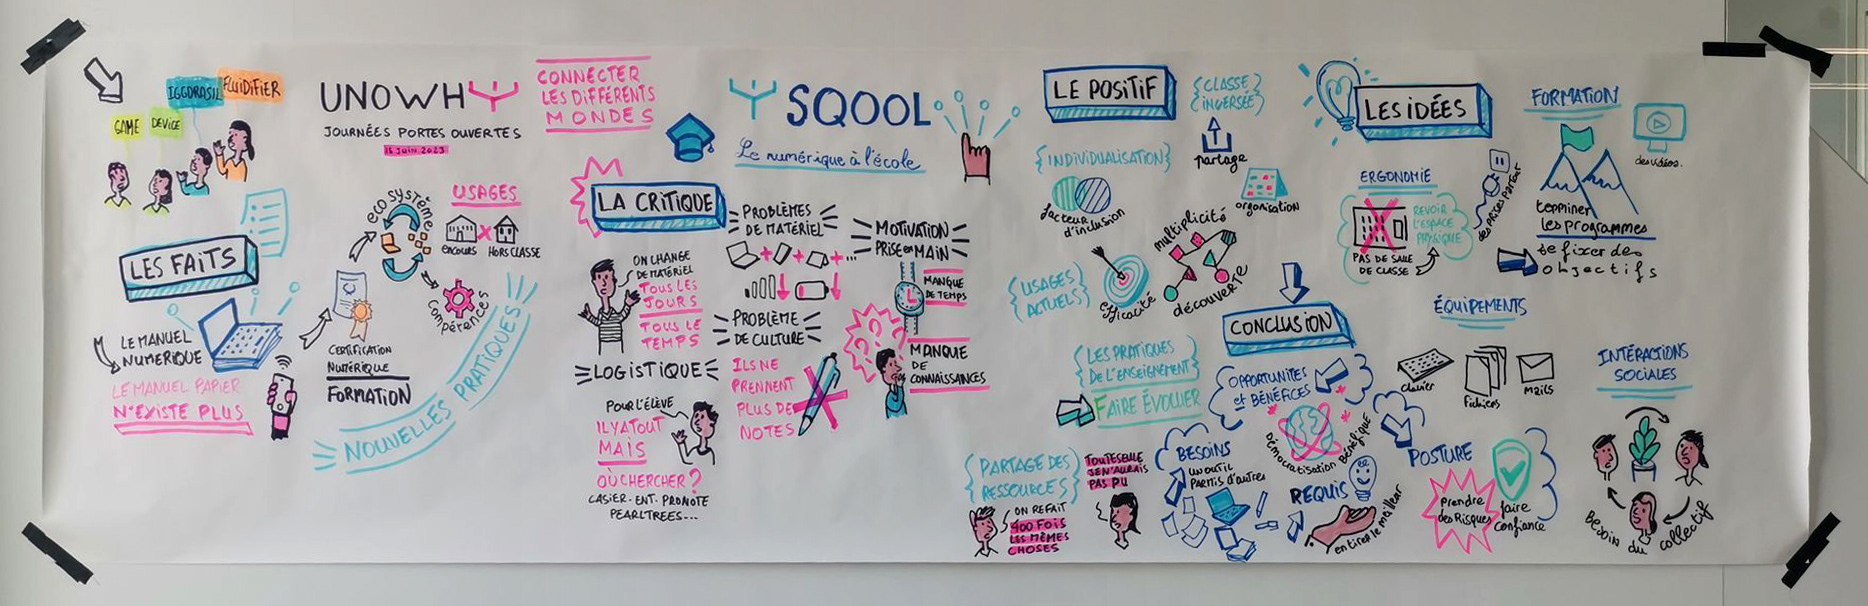 GAME
DEVICE
IGGDRASIL
FLUIDIFIER
LES FAITS
LE MANUEL
NUMÉRIQUE
LE MANUEL PAPIER
N'EXISTE PLUS
UNOWHY
JOURNÉES PORTES OUVERTES
15 Juin 2023
écosystème
USAGES
EN COURS
HORS CLASSE
compétences
CERTIFICATION
NUMÉRIQUE
FORMATION
NOUVELLES PRATIQUES
CONNECTER
LES DIFFÉRENTS
MONDES
SQOOL
Le numérique à l'école
LA CRITIQUE
ON CHANGE
DE MATÉRIEL
TOUS LES
JOURS
TOUS LE
TEMPS
LOGISTIQUE
POUR L'ÉLÈVE
IL Y A TOUT
MAIS
OÙ CHERCHER?
CASIER. ENT. PRONOTE
PEARLTREES...
PROBLÈMES
DE MATÉRIEL
PROBLÈME
DE CULTURE
ILS NE
PRENNENT
PLUS DE
NOTES
MOTIVATION
PRISE EN MAIN
MANQUE
DE TEMPS
MANQUE
DE
CONNAISSANCES
LE POSITIF
{CLASSE
INVERSÉE}
partage
{INDIVIDUALISATION}
facteur
d'inclusion
organisation
multiplicité
découverte
{USAGES
ACTUELS}
efficacité
{LES PRATIQUES
DE L'ENSEIGNEMENT}
FAIRE ÉVOLUER
{PARTAGE DES
RESSOURCES}
ON REFAIT
400 FOIS
LES MÊMES
CHOSES
TOUTE SEULE
JE N'AURAIS
PAS PU
CONCLUSION
OPPORTUNITÉS
et BÉNÉFICES
Démocratisation Bénéfique
BESOINS
UN OUTIL
PARMIS D'AUTRES
REQUIS
en tirer le meilleur
POSTURE
prendre
des Risques
faire
confiance
LES IDÉES
ERGONOMIE
REVOIR
L'ESPACE
PHYSIQUE
PAS DE SALLE
DE CLASSE
des prises partout
FORMATION
des vidéos.
terminer
les programmes
se fixer des
objectifs
ÉQUIPEMENTS
clavier
fichiers
mails
INTÉRACTIONS
SOCIALES
Besoin du collectif